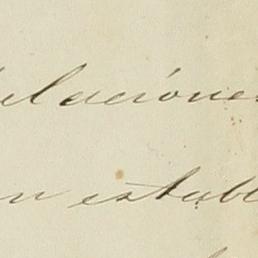 elaciones
n establ